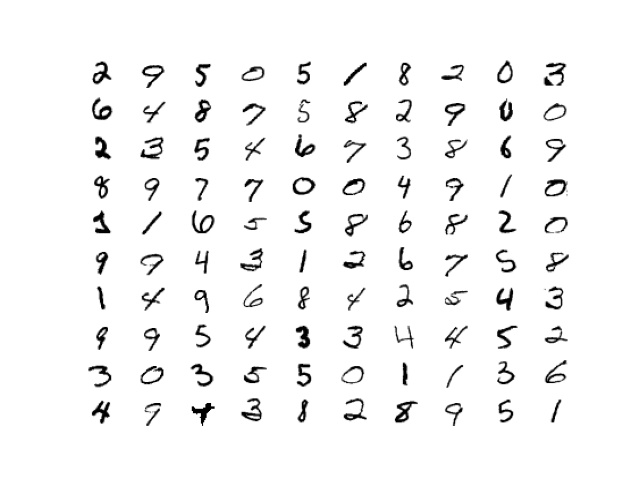 2 9 5 0 5 1 8 2 0 3
6 4 8 7 5 8 2 9 0 0
2 3 5 4 6 7 3 8 6 9
8 9 7 7 0 0 4 9 1 0
1 1 6 5 5 8 6 8 2 0
9 9 4 3 1 2 6 7 5 8
1 4 9 6 8 4 2 5 4 3
9 9 5 4 3 3 4 4 5 2
3 0 3 5 5 0 1 1 3 6
4 9 3 8 2 8 9 5 1